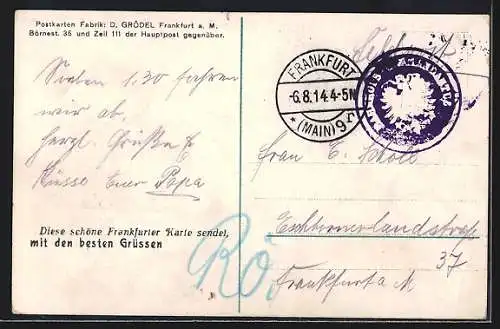 Postkarten Fabrik: D. GRÖDEL Frankfurt a. M.
Börnest. 35 und Zeil 111 der Hauptpost gegenüber.
Soeben 1.30 fahren
wir ab.
Herzl. Grüße &
Küsse Euer Papa
Diese schöne Frankfurter Karte sendet,
mit den besten Grüssen
Feldpost
FRANKFURT
-6.8.14.4-5N
* (MAIN) 9
Frau E. Scholl
Eschersheimerlandstraße
37
Frankfurt a M
Rö